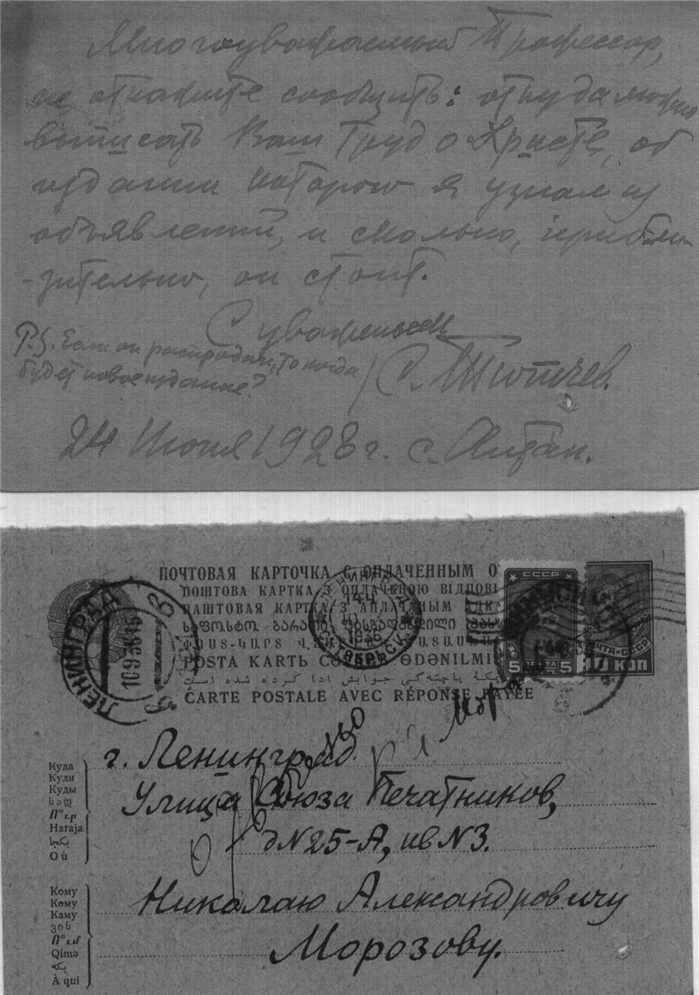 Многоуважаемый Профессор,
не откажите сообщить: откуда можно
выписать Ваш Труд о Христе, об
издании которого я узнал из
объявлений, и сколько, прибли-
-зительно, он стоит.
С уважением
С. Тютчев.
P.S. Если он распродан, то когда
будет новое издание?
24 Июня 1928 г. с. Алтан.
ПОЧТОВАЯ КАРТОЧКА С ОПЛАЧЕННЫМ О
ПОШТОВА КАРТКА З ОПЛАЧЕНОЮ ВІДПОВІ
ПАШТОВАЯ КАРТКА З АПЛАЧАНЫМ АДК
POSTA KARTЬ ӘDƏNILMI
CARTE POSTALE AVEC RÉPONSE PAYÉE
ЛЕНИНГРАД
СССР
5 5
ПОЧТА СССР
10 КОП
Куда
Куди
Куды
სად
Haraja
Où
г. Ленинград.
Улица Союза Печатников,
д N25-А, кв N3.
Кому
Кому
Каму
ვის
Qimə
À qui
Николаю Александровичу
Морозову.